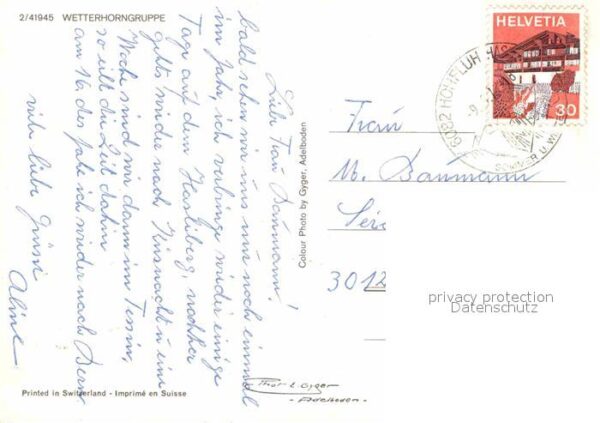 2/41945 WETTERHORNGRUPPE
Liebe Frau Baumann!
bald sehen wir uns nur noch einmal
im Jahr, ich verbringe wieder einige
Tage auf dem Hasliberg, nachher
geht's wieder nach Küsnacht u. eine
Woche sind wir dann im Tessin,
so eilt die Zeit dahin
am 16. des Jahr ich wieder nach Bern
viele liebe Grüsse
Aline
Colour Photo by Gyger, Adelboden
HELVETIA
30
6082 HOHFLUH HAS
SOMMER U. WI
Frau
M. Baumann
3012
privacy protection
Datenschutz
Printed in Switzerland - Imprimé en Suisse
Phot E. Gyger
- Adelboden -